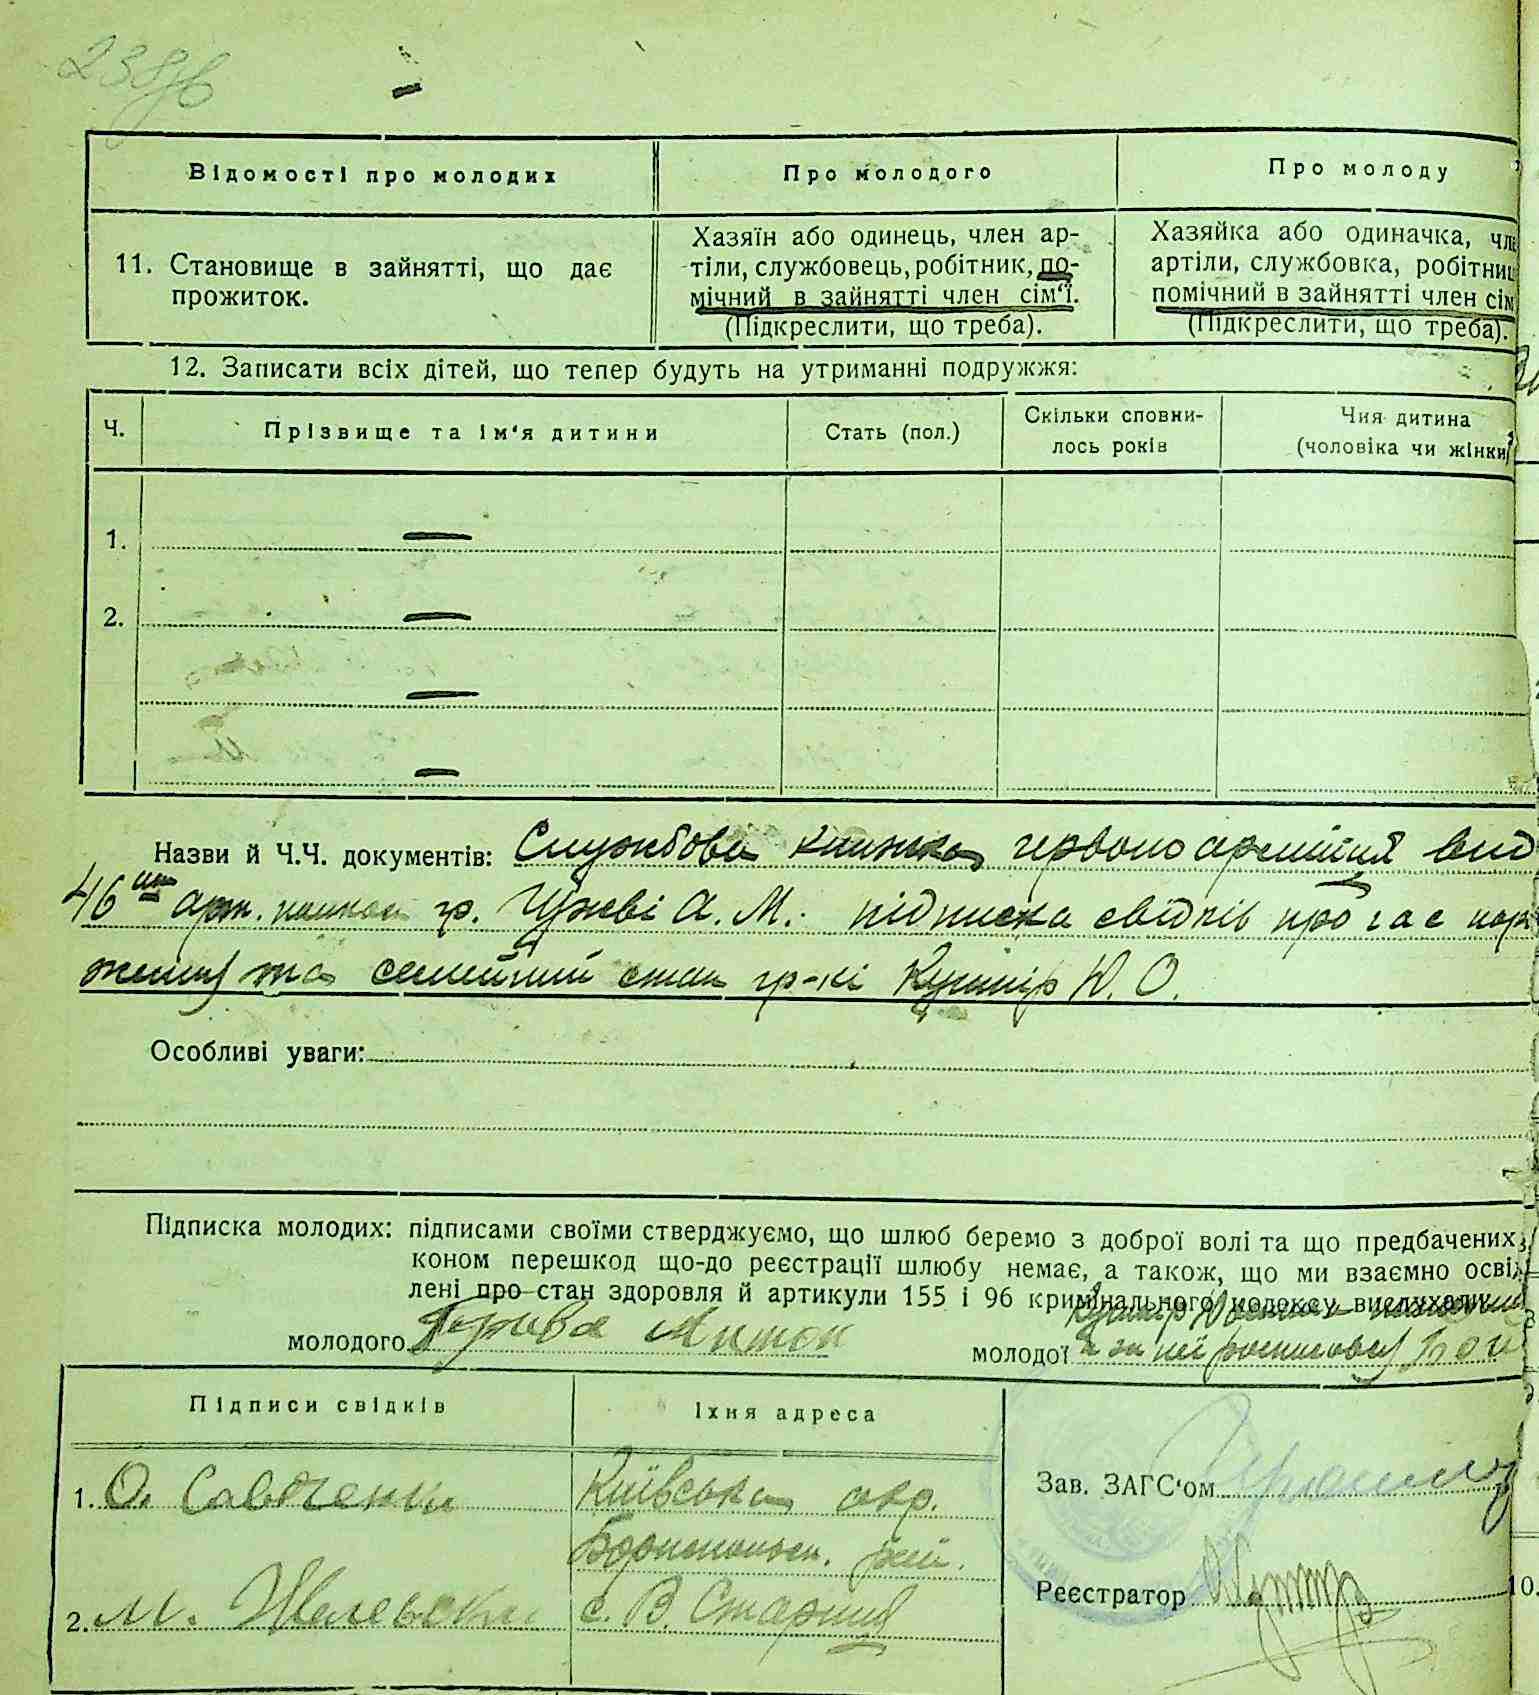 Відомості про молодих
Про молодого
Про молоду
11. Становище в зайнятті, що дає
прожиток.
Хазяїн або одинець, член ар-
тіли, службовець, робітник, по-
мічний в зайнятті член сім'ї.
(Підкреслити, що треба).
Хазяйка або одиначка, чл
артіли, службовка, робітниц
помічний в зайнятті член сім
(Підкреслити, що треба).
12. Записати всіх дітей, що тепер будуть на утриманні подружжя:
Ч.
Прізвище та ім'я дитини
Стать (пол.)
Скільки сповни-
лось років
Чия дитина
(чоловіка чи жінки)
1.
2.
Назви й Ч.Ч. документів: Службова книжка червоноармійця вид
46 арт. полком гр. А. М. підписка свідків про час нар
ження та семейний стан гр-кі Кушнір Ю. О.
Особливі уваги:
Підписка молодих: підписами своїми стверджуємо, що шлюб беремо з доброї волі та що предбачених
коном перешкод що-до реєстрації шлюбу немає, а також, що ми взаємно осві
лені про стан здоровля й артикули 155 і 96 кримінального кодексу вислухали
молодого
молодої Кушнір
за неї росписався
Підписи свідків
Їхня адреса
1. О. Савченко
Київська окр.
Бориспольск. рай.
2. М.
с. В. Стариця
Зав. ЗАГС'ом
Реєстратор
10.